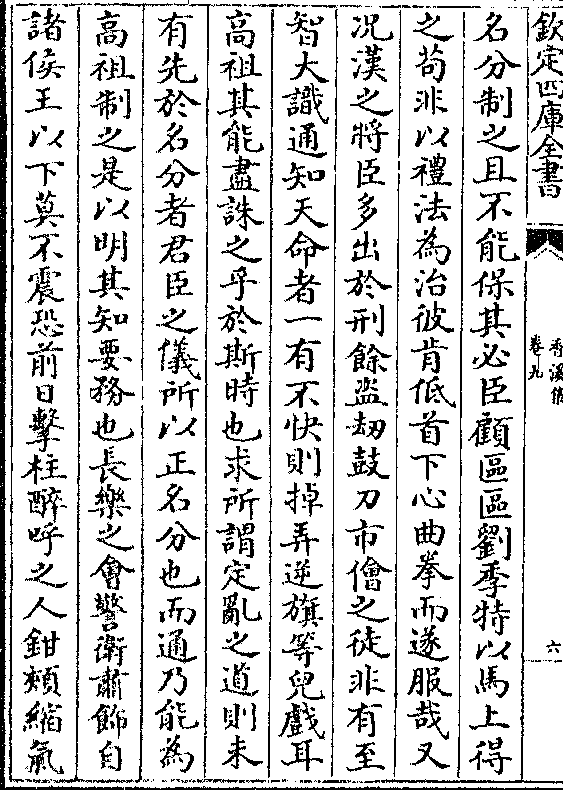 欽定四庫全書
香溪集
卷九
六
名分制之且不能保其必臣顧區區劉季特以馬上得
之苟非以禮法為治彼肯低首下心曲拳而遂服哉又
况漢之將臣多出於刑餘盜刼鼓刀市儈之徒非有至
智大識通知天命者一有不快則掉弄逆旗等兒戲耳
高祖其能盡誅之乎於斯時也求所謂定亂之道則未
有先於名分者君臣之儀所以正名分也而通乃能為
高祖制之是以明其知要務也長樂之會警衛肅飾自
諸侯王以下莫不震恐前日擊柱醉呼之人鉗頰縮氣